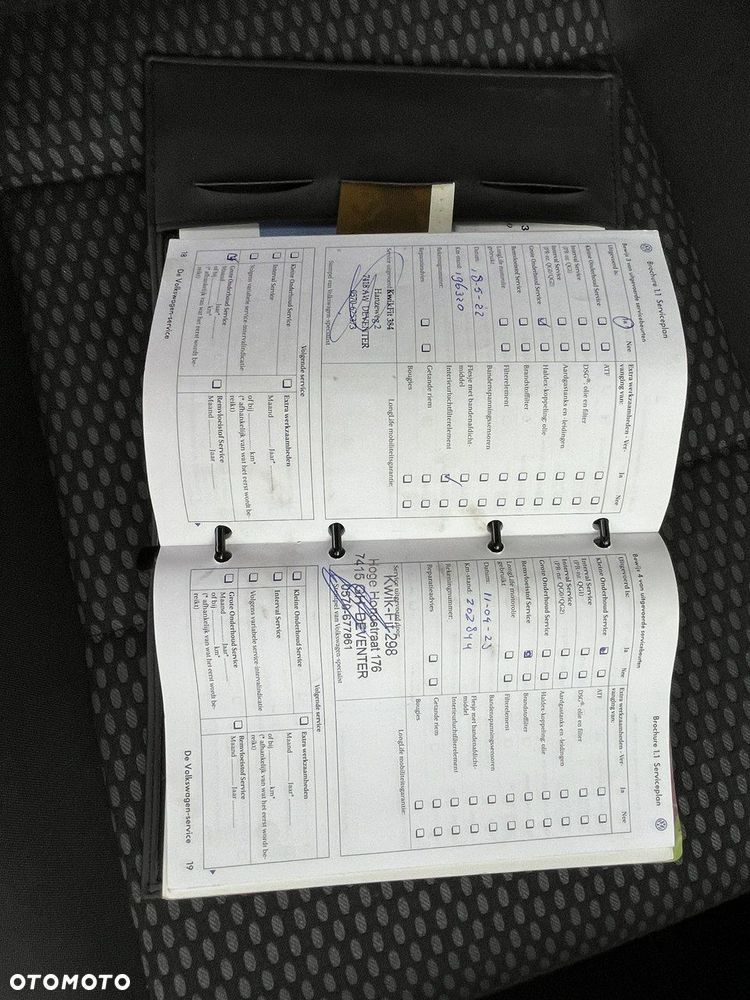 Brochure 1.1 Serviceplan
Bewijs 3 van uitgevoerde servicebeurten
Uitgevoerd is:
Ja
Nee
Kleine Onderhoud Service
Interval Service
(PR-nr. QG1)
Interval Service
(PR-nr. QG0/QG2)
Grote Onderhoud Service
Remvloeistof Service
LongLife motorolie
gebruikt
Datum: 18-5-22
Km-stand: 196320
Rekeningnummer:
Reparatieadvies
Extra werkzaamheden - Ver-
vanging van:
Ja
Nee
ATF
DSG®: olie en filter
Aardgastanks en -leidingen
Haldex koppeling: olie
Brandstoffilter
Filterelement
Bandenspanningssensoren
Flesje met bandenafdicht-
middel
Interieurluchtfilterelement
Getande riem
Bougies
Service uitgevoerd
KwikFit 384
Hanzeweg 2
7418 AW DEVENTER
Stempel van Volkswagen-specialist
LongLife mobiliteitsgarantie:
Volgende service
Kleine Onderhoud Service
Interval Service
Volgens variabele service-intervalindicatie
Grote Onderhoud Service
Maand Jaar*
of bij km*
(* afhankelijk van wat het eerst wordt be-
reikt)
Extra werkzaamheden
Maand Jaar*
of bij km*
(* afhankelijk van wat het eerst wordt be-
reikt)
Remvloeistof Service
Maand Jaar
18 De Volkswagen-service
Brochure 1.1 Serviceplan
Bewijs 4 van uitgevoerde servicebeurten
Uitgevoerd is:
Ja
Nee
Kleine Onderhoud Service
Interval Service
(PR-nr. QG1)
Interval Service
(PR-nr. QG0/QG2)
Grote Onderhoud Service
Remvloeistof Service
LongLife motorolie
gebruikt
Datum: 11-04-23
Km-stand: 202844
Rekeningnummer:
Reparatieadvies
Extra werkzaamheden - Ver-
vanging van:
Ja
Nee
ATF
DSG®: olie en filter
Aardgastanks en -leidingen
Haldex koppeling: olie
Brandstoffilter
Filterelement
Bandenspanningssensoren
Flesje met bandenafdicht-
middel
Interieurluchtfilterelement
Getande riem
Bougies
Service uitgevoerd
KWIK-FIT 298
Hoge Hondstraat 176
7415 DEVENTER
0570-677861
Stempel van Volkswagen-specialist
LongLife mobiliteitsgarantie:
Volgende service
Kleine Onderhoud Service
Interval Service
Volgens variabele service-intervalindicatie
Grote Onderhoud Service
Maand Jaar*
of bij km*
(* afhankelijk van wat het eerst wordt be-
reikt)
Extra werkzaamheden
Maand Jaar*
of bij km*
(* afhankelijk van wat het eerst wordt be-
reikt)
Remvloeistof Service
Maand Jaar
De Volkswagen-service 19
OTOMOTO